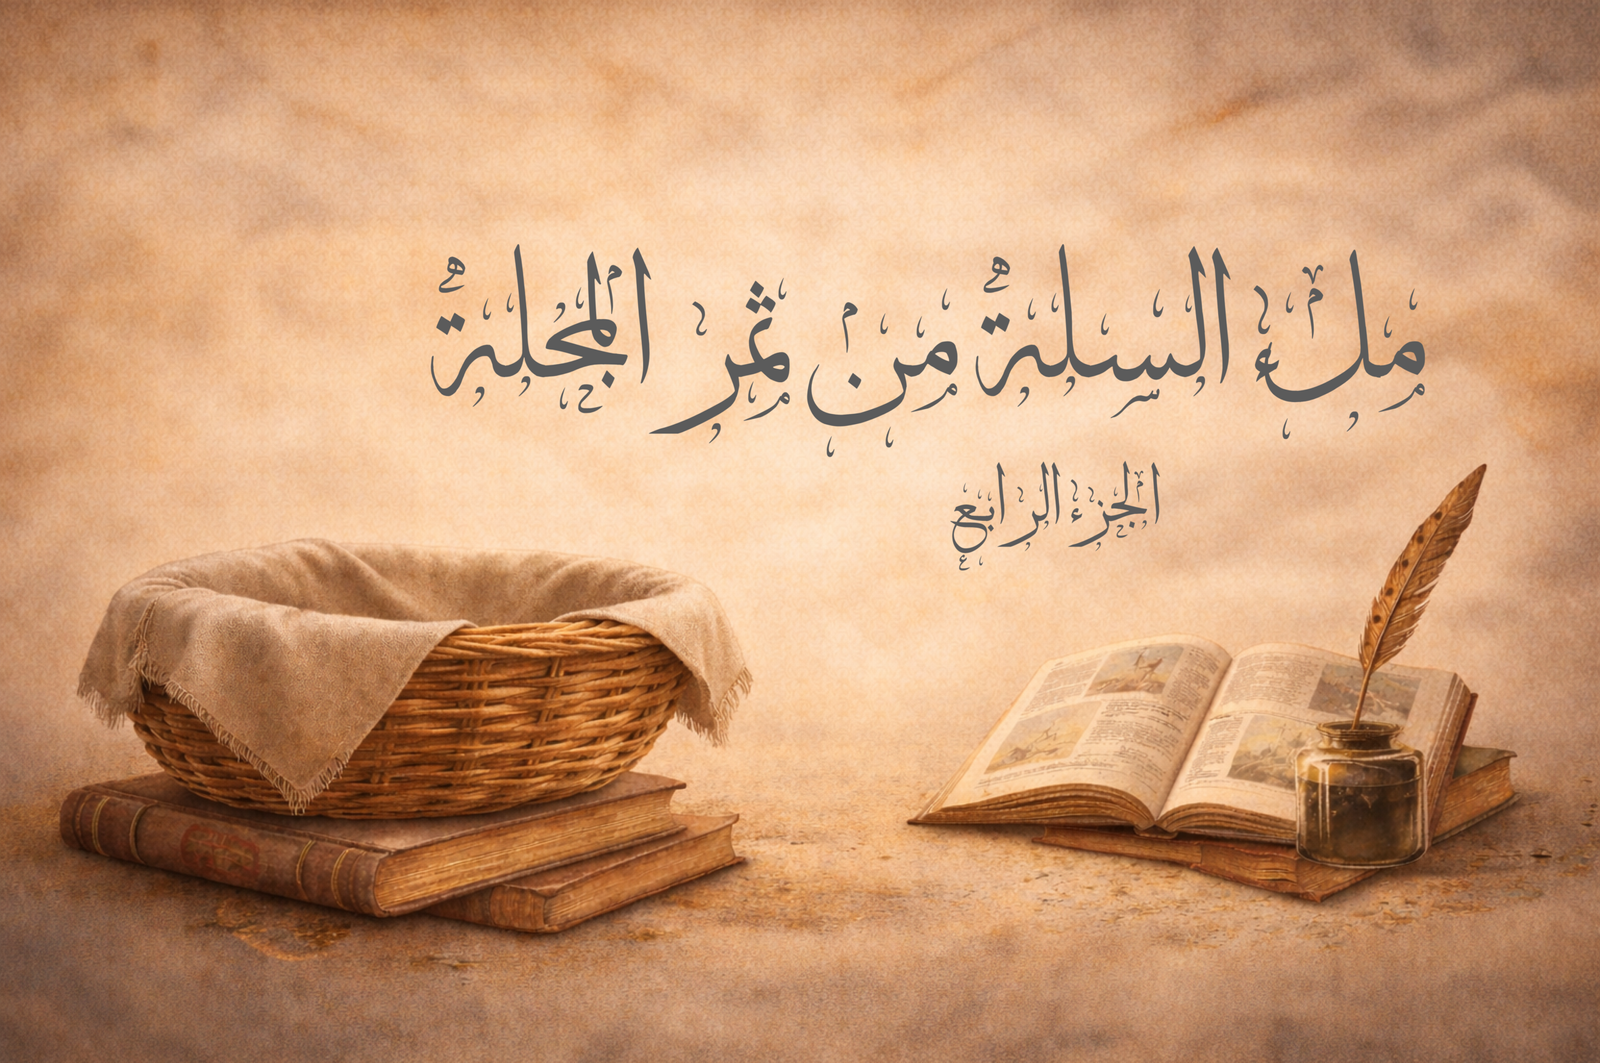 ملء السلة من ثمر المجلة
الجزء الرابع